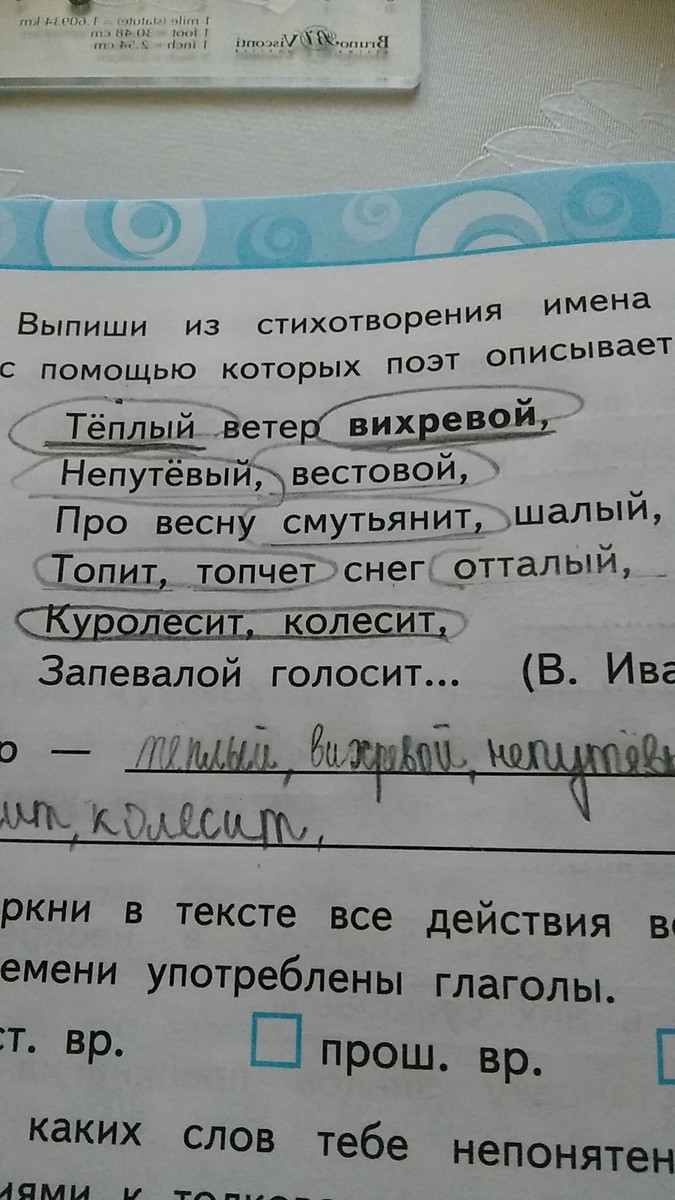 1 mile (statute) = 1.60934 km
1 foot = 30.48 cm
1 inch = 2.54 cm
Bruno Visconti
Выпиши из стихотворения имена
с помощью которых поэт описывает
Тёплый ветер вихревой,
Непутёвый, вестовой,
Про весну смутьянит, шалый,
Топит, топчет снег отталый,
Куролесит, колесит,
Запевалой голосит... (В. Ива
р — теплый, вихревой, непутёвы
ит, колесит,
ркни в тексте все действия ве
емени употреблены глаголы.
ст. вр. прош. вр.
каких слов тебе непонятен
иями к толков